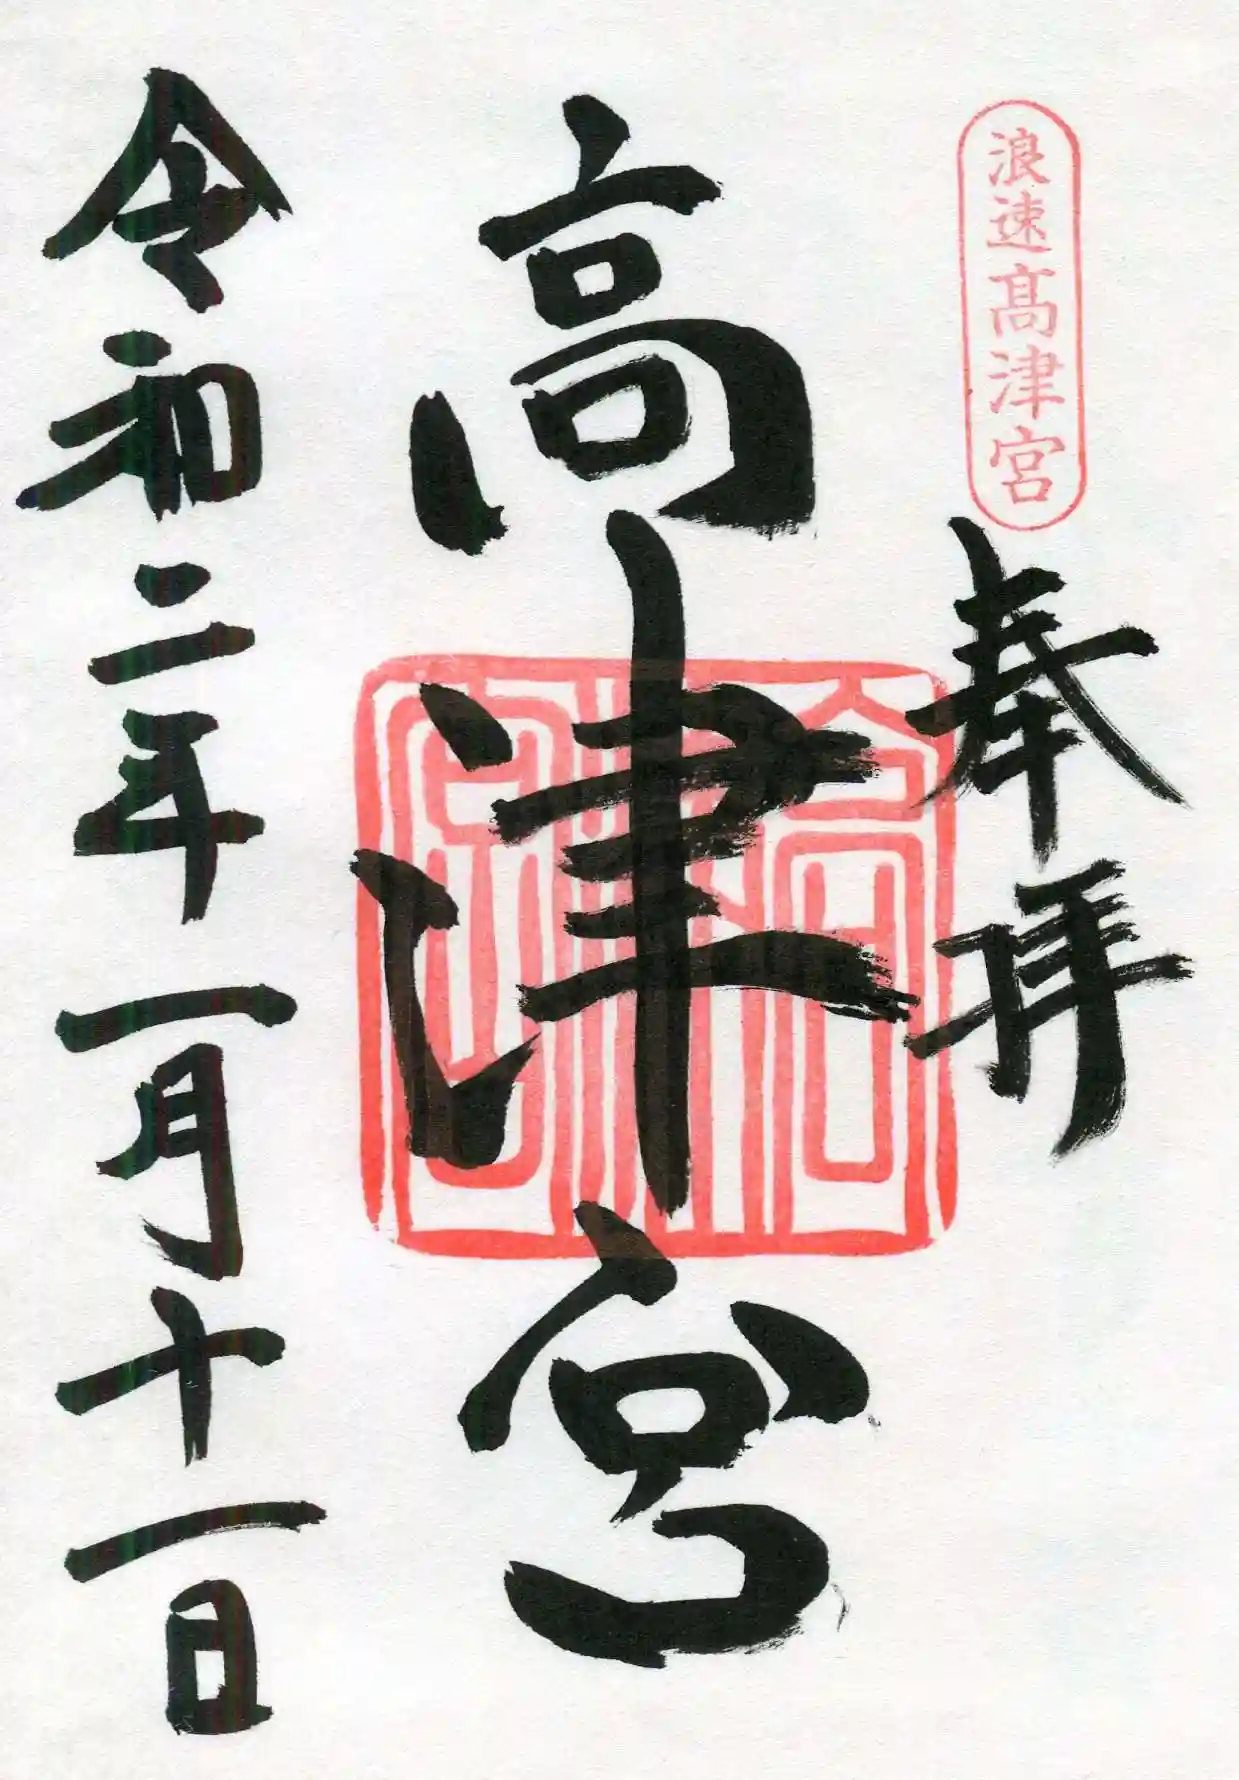 浪速髙津宮
奉拝
高津宮
令和二年一月十一日